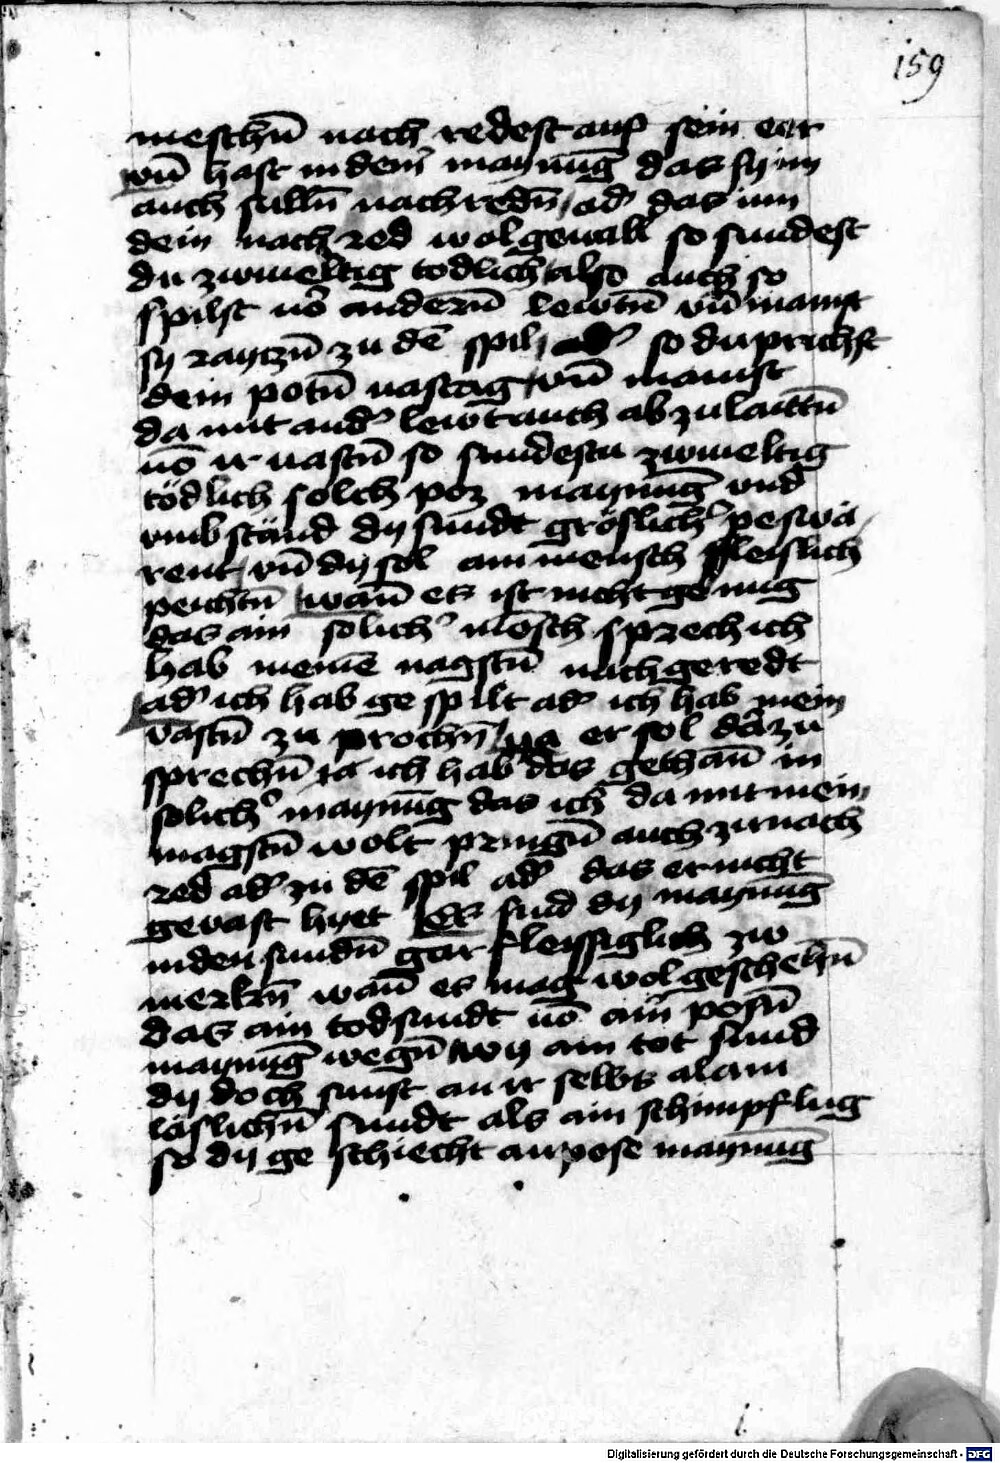 159
meschn̄ nach redest auf sein eer
vn̄ hast in dem̄ maynūg das sy im
auch sullñ nachredn̄ / ad' das im
dein nach red wolgevall so sundest
du zwiueltig todlich / also auch so
spilst uō anderñ lewtñ vn̄ mainst
sy raytzñ zu dē spil / ad' so du prichst
dein potñ vastag / vn̄ mainst
da mit and' lewt auch ab zu laittñ
uō ir vastñ so sundestu zwiueltig
tödlich solch poz maynūg vnd
vmbständ dy sundt gröslich' peswä
rent / vn̄ dy sol ain mensch fleislich
peichtn̄ wan̄ es ist nicht genug
das ain solich' mēsch sprech ich
hab meinē nagstñ nachgeredt
ad' ich hab gespilt ad' ich hab mein
vastñ zu prochn̄ / er sol dazu
sprechn̄ ja ich hab das gethan̄ in
solich' maynūg das ich da mit mein
nagstñ wolt pringn̄ auch zu nach
red ad' zu dē spil ad' das er nicht
gevast hyet Es sind dy maynūg
in den sundñ gar fleissiglich zw
merkn̄ wan̄ es mag wol geschehn̄
das ain todsundt uō ain̄ posñ
maynūg wegn̄ wy ain tot sund
dy doch sunst an ir selbs alain
läslichn̄ sundt als ain schimpf lug
so dy geschiecht an pose maynūg
Digitalisierung gefördert durch die Deutsche Forschungsgemeinschaft - DFG